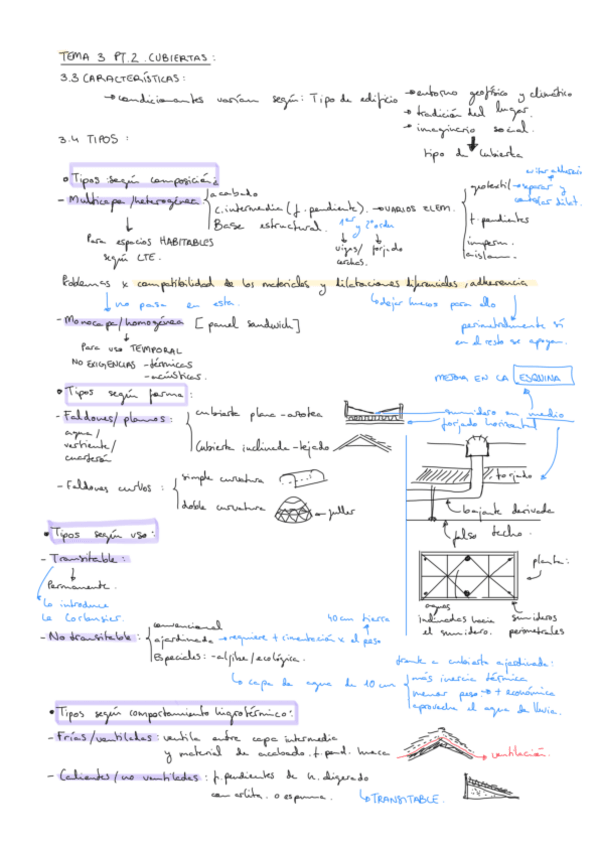 TEMA 3 PT.2. CUBIERTAS:
3.3 CARACTERÍSTICAS:
→ condicionantes varían según: Tipo de edificio → entorno geofísico y climático
→ tradición del lugar.
→ imaginario social.
tipo de cubierta
3.4 TIPOS:
• Tipos según composición:
- Multicapa/heterogénea
acabado
c. intermedia (f. pendiente). → VARIOS ELEM.
Base estructural.
1er y 2º orden
vigas/ forjado
cerchas
geotextil → separar y
f. pendientes
imperm.
aislam.
Para espacios HABITABLES
según CTE.
Problemas x compatibilidad de los materiales y dilataciones diferenciales, adherencia
↳ no pasa en esta.
↳ dejar huecos para ello
perimetralmente sí
en el resto se apoyan.
- Monocapa/homogénea [panel sandwich]
Para uso TEMPORAL
NO EXIGENCIAS - térmicas
- acústicas.
MEJOR EN LA ESQUINA
• Tipos según forma:
- Faldones/planos:
agua/
vertiente/
cuarterón
cubierta plana - azotea
Cubierta inclinada - tejado
sumidero en medio
forjado horizontal
forjado
bajante derivada
falso techo.
- Faldones curvos:
simple curvatura
doble curvatura
planta:
aguas
inclinadas hacia
el sumidero.
sumideros
perimetrales
• Tipos según uso:
- Transitable:
Permanente.
Lo introduce
Le Corbusier.
- No transitable:
convencional
ajardinada → requiere + cimentación x el peso
40 cm tierra
Especiales: - aljibe/ecológica.
↳ capa de agua de 10 cm
frente a cubierta ajardinada:
más inercia térmica
menor peso → + económica
aprovecha el agua de lluvia.
• Tipos según comportamiento higrotérmico:
- Frías/ventiladas: ventila entre capa intermedia
y material de acabado. f. pend. hueca
→ ventilación.
- Calientes/no ventiladas: f. pendientes de h. aligerado
con arlita. o espuma.
↳ TRANSITABLE.